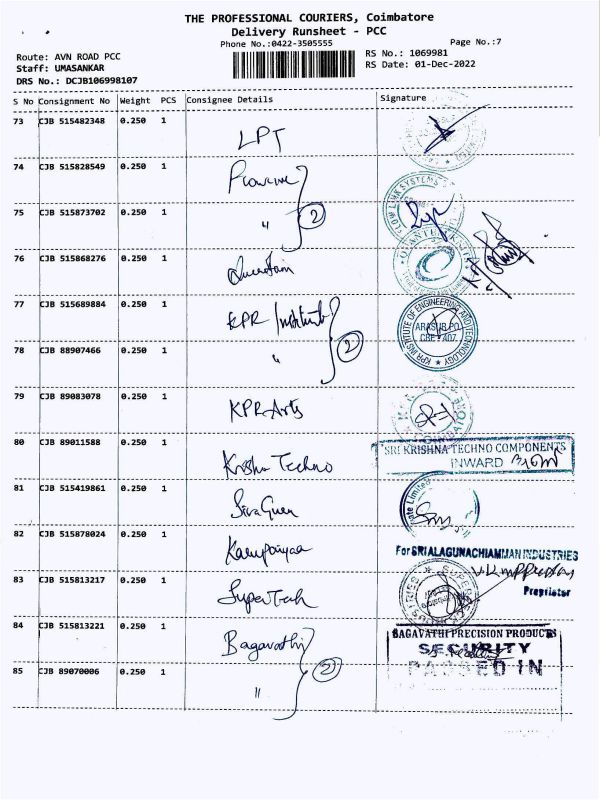 THE PROFESSIONAL COURIERS, Coimbatore
Delivery Runsheet - PCC
Phone No.:0422-3505555
Page No.:7
Route: AVN ROAD PCC
RS No.: 1069981
Staff: UMASANKAR
RS Date: 01-Dec-2022
DRS No.: DCJB106998107
S No Consignment No Weight PCS Consignee Details Signature
73 CJB 515482348 0.250 1 LPT
74 CJB 515828549 0.250 1
FLOW LINK SYSTEMS
75 CJB 515873702 0.250 1 " 2
76 CJB 515868276 0.250 1
77 CJB 515689884 0.250 1 KPR Institute
KPR INSTITUTE OF ENGINEERING AND TECHNOLOGY
ARASUR PO.
CBE - 407
78 CJB 88907466 0.250 1 " 2
79 CJB 89083078 0.250 1 KPR Arts
80 CJB 89011588 0.250 1 Krishna Techno
SRI KRISHNA TECHNO COMPONENTS
INWARD
81 CJB 515419861 0.250 1
82 CJB 515878024 0.250 1
For SRI ALAGUNACHIAMMAN INDUSTRIES
Proprietor
83 CJB 515813217 0.250 1 Super Tech
84 CJB 515813221 0.250 1 Bagavathi
BAGAVATHI PRECISION PRODUCTS
SECURITY
PASSED IN
85 CJB 89070006 0.250 1 " 2